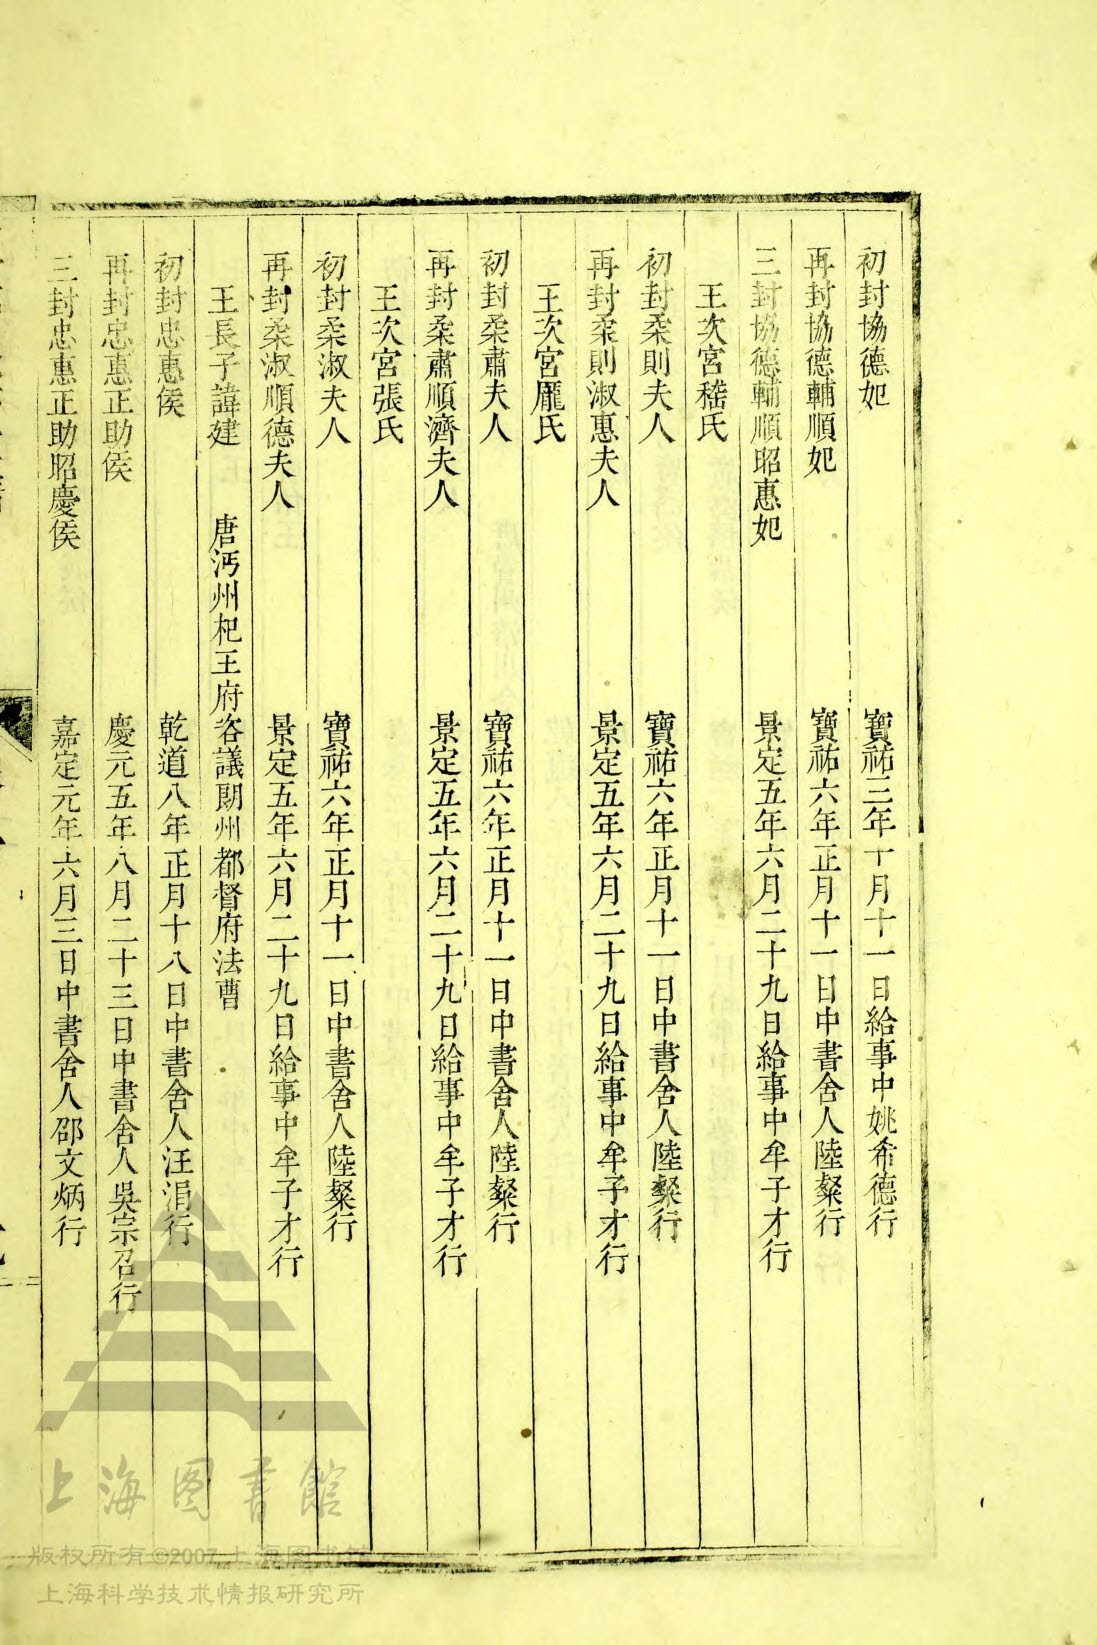 初封協德妃 寶祐三年十月十一日給事中姚希德行
再封協德輔順妃 寶祐六年正月十一日中書舍人陸粲行
三封協德輔順昭惠妃 景定五年六月二十九日給事中牟子才行
王次宮嵇氏
初封柔則夫人 寶祐六年正月十一日中書舍人陸粲行
再封柔則淑惠夫人 景定五年六月二十九日給事中牟子才行
王次宮龐氏
初封柔肅夫人 寶祐六年正月十一日中書舍人陸粲行
再封柔肅順濟夫人 景定五年六月二十九日給事中牟子才行
王次宮張氏
初封柔淑夫人 寶祐六年正月十一日中書舍人陸粲行
再封柔淑順德夫人 景定五年六月二十九日給事中牟子才行
王長子諱建 唐沔州杞王府咨議閬州都督府法曹
初封忠惠侯 乾道八年正月十八日中書舍人汪涓行
再封忠惠正助侯 慶元五年八月二十三日中書舍人吳宗召行
三封忠惠正助昭慶侯 嘉定元年六月三日中書舍人邵文炳行
上海图書館
版权所有©2007上海图書館
上海科学技术情报研究所